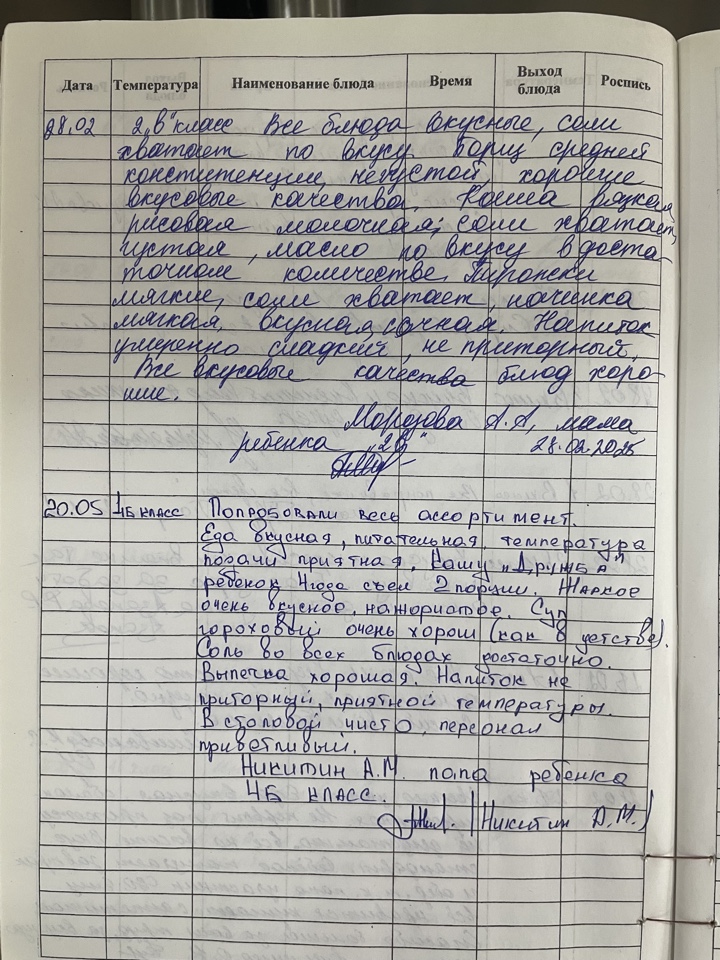 Дата Температура Наименование блюда Время Выход блюда Роспись
28.02 2 „В" класс Все блюда вкусные, соли
хватает по вкусу. Борщ средней
конститенции, негустой, хорошие
вкусовые качества. Каша вязкая,
рисовая молочная; соли хватает,
густая, масло по вкусу в доста-
точном количестве. Пирожки
мягкие, соли хватает, начинка
мягкая, вкусная, сочная. Напиток
умеренно сладкий, не приторный.
Все вкусовые качества блюд хоро-
шие.
Морозова А.А, мама
ребенка „2В" 28.02.2025
20.05 4Б класс Попробовали весь ассортимент.
Еда вкусная, питательная, температура
подачи приятная. Кашу „Дружба"
ребенок 4года съел 2 порции. Жаркое
очень вкусное, нажористое. Суп
гороховый очень хорош (как в детстве).
Соль во всех блюдах достаточно.
Выпечка хорошая. Напиток не
приторный, приятной температуры.
В столовой чисто, персонал
приветливый.
Никитин А.М. папа ребенка
4Б класс.
/Никитин А.М./